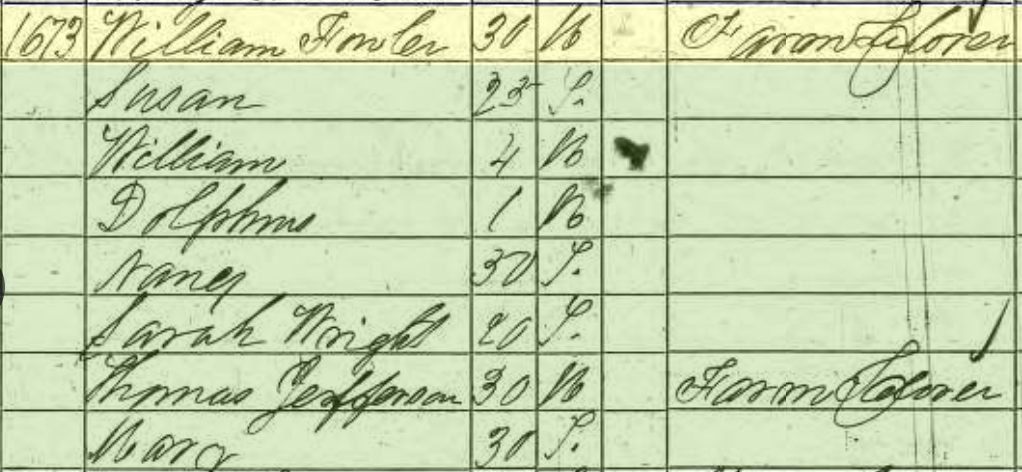 1673 William Fowler 30 M Farm Laborer
Susan 23 F.
William 4 M
Dolphus 1 M
Nancy 30 F.
Sarah Wright 20 F.
Thomas Jefferson 30 M Farm Laborer
Mary 30 F.